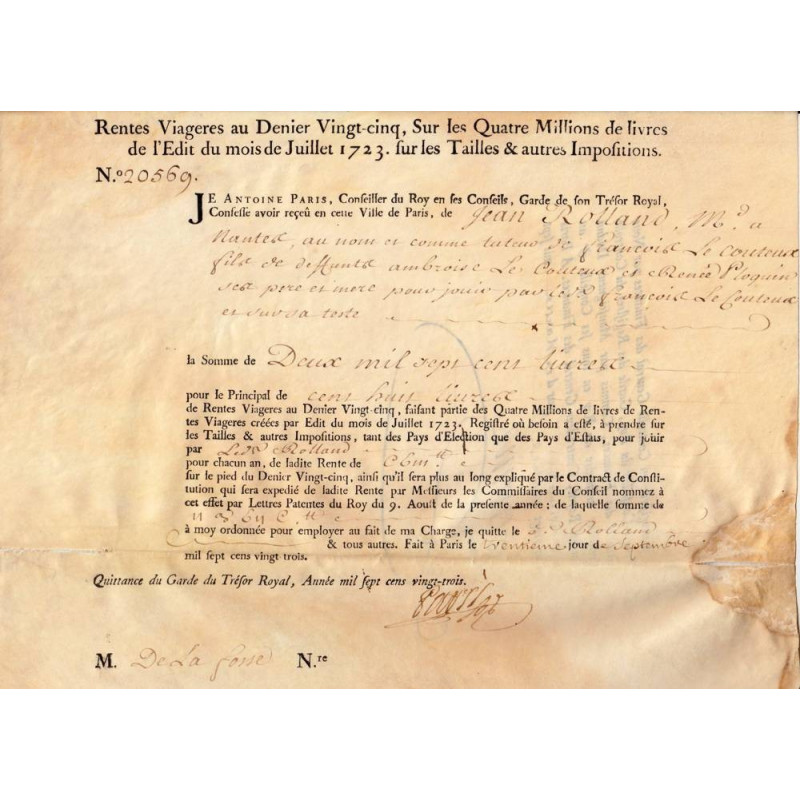 Rentes Viageres au Denier Vingt-cinq, Sur les Quatre Millions de livres
de l'Edit du mois de Juillet 1723. sur les Tailles & autres Impositions.
N.º 20569.
JE ANTOINE PARIS, Conseiller du Roy en ses Conseils, Garde de son Trésor Royal,
Confesse avoir reçeû en cette Ville de Paris, de Jean Rolland, M.d a
Nantes, au nom et comme tuteur de françois Le Couteux
fils de deffunts ambroise Le Couteux et Renée Ploquin
ses pere et mere pour jouir par led. françois Le Couteux
et sur sa teste
la Somme de Deux mil sept cens livres
pour le Principal de cens huit livres
de Rentes Viageres au Denier Vingt-cinq, faisant partie des Quatre Millions de livres de Ren-
tes Viageres créées par Edit du mois de Juillet 1723. Registré où besoin a esté, à prendre sur
les Tailles & autres Impositions, tant des Pays d'Election que des Pays d'Estats, pour jouir
par Rolland
pour chacun an, de ladite Rente de
sur le pied du Denier Vingt-cinq, ainsi qu'il sera plus au long expliqué par le Contract de Consti-
tution qui sera expedié de ladite Rente par Messieurs les Commissaires du Conseil nommez à
cet effet par Lettres Patentes du Roy du 9. Aoust de la presente année; de laquelle somme de
à moy ordonnée pour employer au fait de ma Charge, je quitte le Rolland
& tous autres. Fait à Paris le trentieme jour de Septembre
mil sept cens vingt trois.
Quittance du Garde du Trésor Royal, Année mil sept cens vingt-trois.
Paris
M. De La fosse N.re